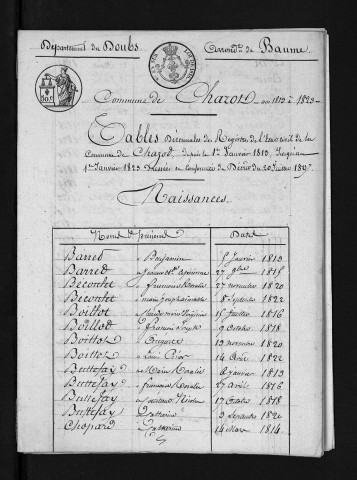 Département du Doubs Arrond.t de Baume
50 c
Commune de Chazot an 1813 à 1823
Tables Décennales des Registres de l'Etat civil de la
Commune de Chazot, depuis le 1er Janvier 1813, Jusqu'au
1er Janvier 1823 Dressées en Conformité du Décret du 20 1807
Naissances.
Noms et prénoms Dates
Barred Benjamin 5 Janvier 1813
Barred 27 9bre 1815
Bécoutet 27 novembre 1820
Bécoutet 8 Septembre 1822
Boillot 15 Juillet 1816
Boillot François Joseph 9 Octobre 1818
Boillot Eugène 13 novembre 1820
Boillot Louis 14 Août 1822
Buttefay Marie Rosalie 6 Janvier 1813
Buttefay 27 Avril 1816
Buttefay 17 Octobre 1818
Buttefay Catherine 3 Septembre 1820
Chopard Catherine 14 Mars 1814